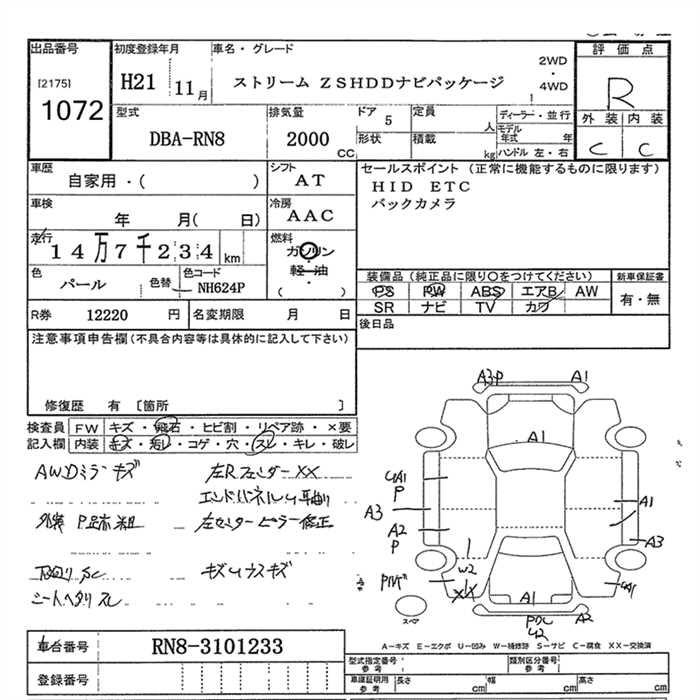 出品番号
[2175]
1072
初度登録年月
H21 11月
車名・グレード
ストリーム ZSHDDナビパッケージ
2WD
・
4WD
評価点
R
外装 内装
C C
型式
DBA-RN8
排気量
2000
CC
ドア 5
定員
人
形状
積載
kg
ディーラー・並行
モデル年式 年
ハンドル 左・右
車歴
自家用・( )
シフト
AT
車検
年 月( 日)
冷房
AAC
走行
14万7千234 km
燃料
ガソリン
・
軽油
・
( )
色
パール
色替
色コード
NH624P
R券 12220 円
名変期限 月 日
セールスポイント (正常に機能するものに限ります)
HID ETC
バックカメラ
装備品(純正品に限り○をつけてください)
PS PW ABS エアB AW
SR ナビ TV カワ
新車保証書
有・無
後日品
注意事項申告欄(不具合内容等は具体的に記入して下さい)
修復歴 有 〔箇所 〕
検査員記入欄
FW キズ・飛石・ヒビ割・リペア跡・×要
内装 キズ・汚レ・コゲ・穴・スレ・キレ・破レ
AWDミラーキズ
左Rフェンダー XX
外装 P跡 粗
左センターピラー修正
下回りSC
シートヘタリ スレ
A3P A1
A1
UA1
P
A3
A2
P
A1
A3
W2
XX
UA1
A1
A2
U2
スペア
A-キズ E-エクボ U-凹み W-補修跡 S-サビ C-腐食 XX-交換済
車台番号
RN8-3101233
登録番号
型式指定番号
参考
類別区分番号
参考
車庫証明用
参考
長さ cm
幅 cm
高さ cm